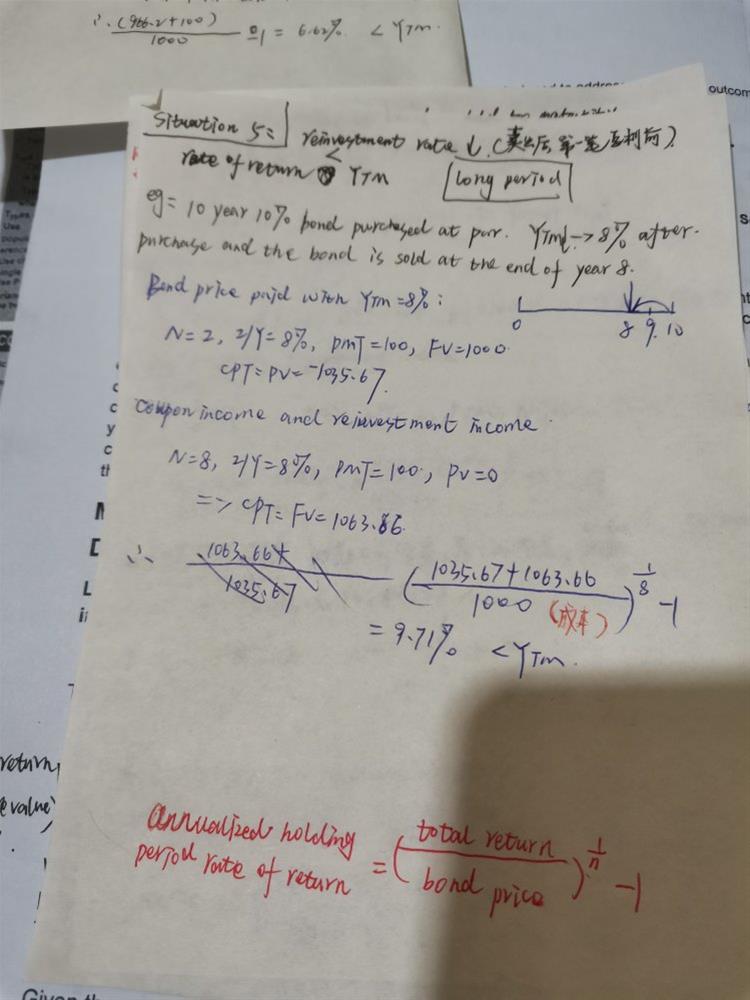 ∴ (966.2+100)
1000
= 6.62% < YTM.
outcom
Situation 5:
reinvestment rate ↓ (卖出后第一笔
rate of return < YTM
Long period
eg= 10 year 10% bond purchased at par. YTM↓→8% after
purchase and the bond is sold at the end of year 8.
Bond price paid with YTM=8%:
0 8 9 10
N=2, I/Y=8%, PMT=100, FV=1000
CPT=PV=-1035.67
Coupon income and reinvestment income
N=8, I/Y=8%, PMT=100, PV=0
=> CPT=FV=1063.66
∴ 1063.66+
1035.67
(1035.67+1063.66
1000 (成本)
)^(1/8) -1
= 9.71% < YTM.
return
e value)
annualized holding
period rate of return
= (total return
bond price
)^(1/n) -1